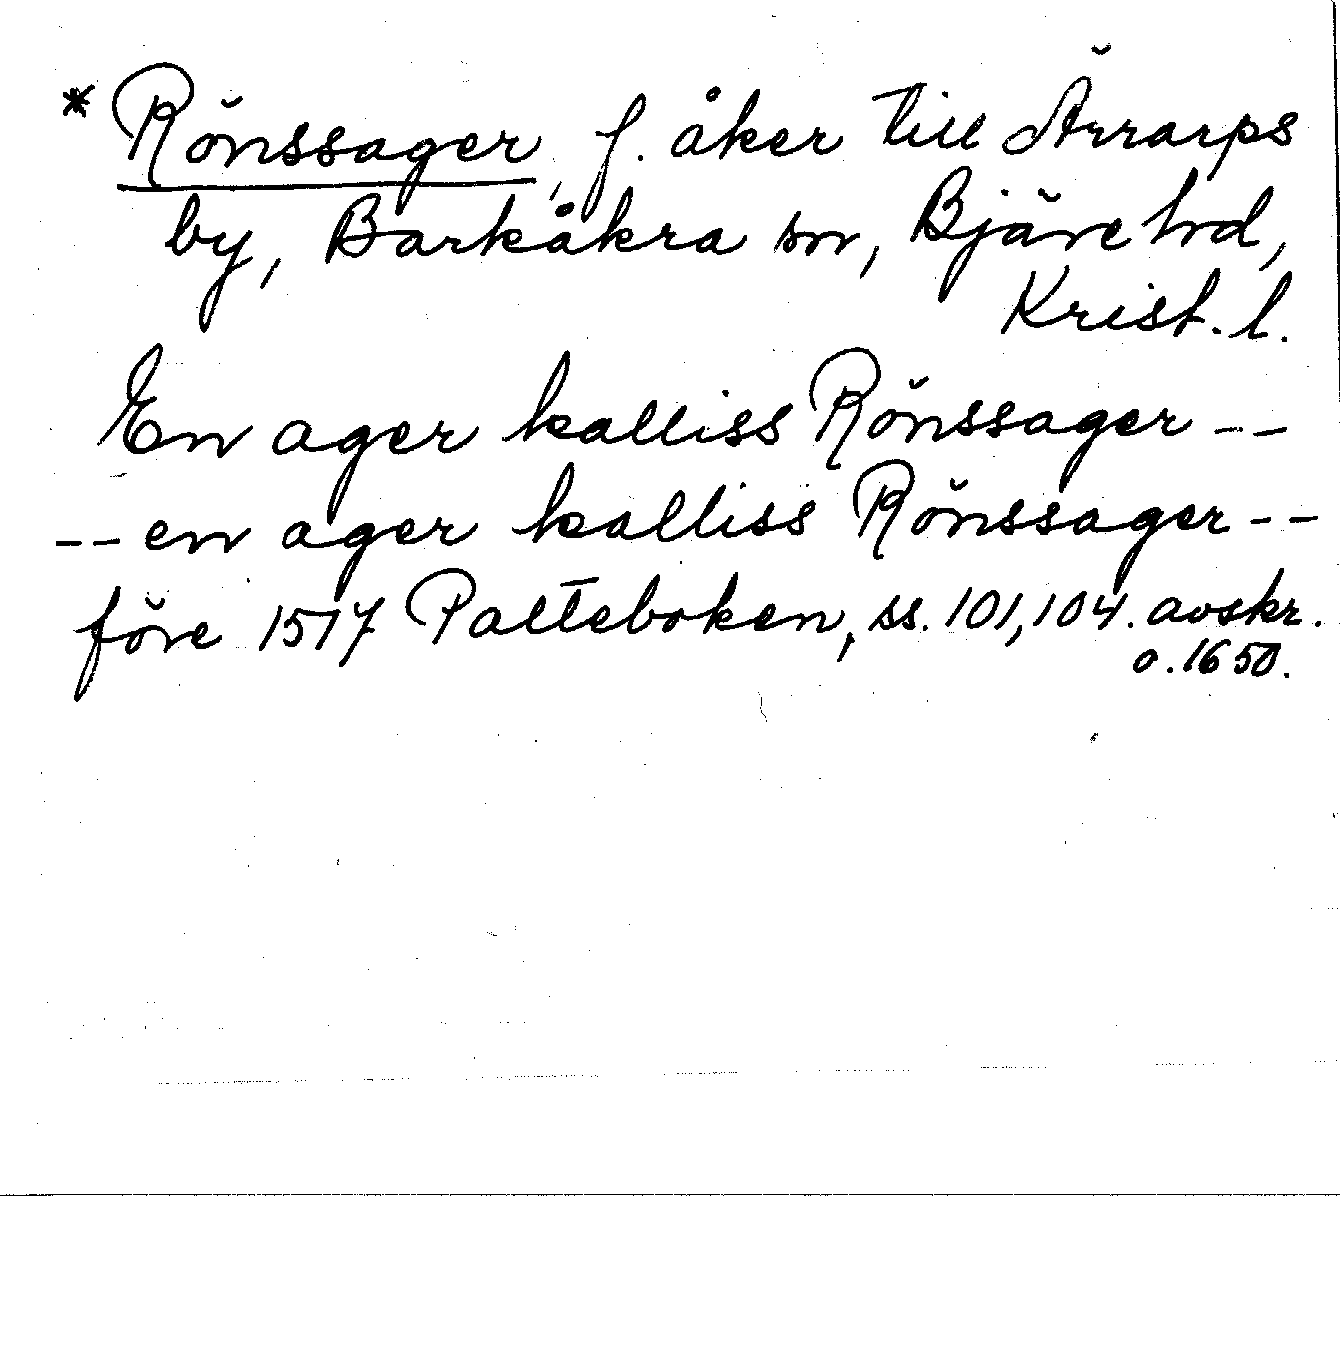 * Rönssager, f. åker till Ärrarps
by, Barkåkra sn, Bjäre hd,
Krist. l.
En ager kalliss Rönssager --
-- en ager kalliss Rönssager --
före 1517 Palteboken, ss. 101, 104. avskr.
o. 1650.